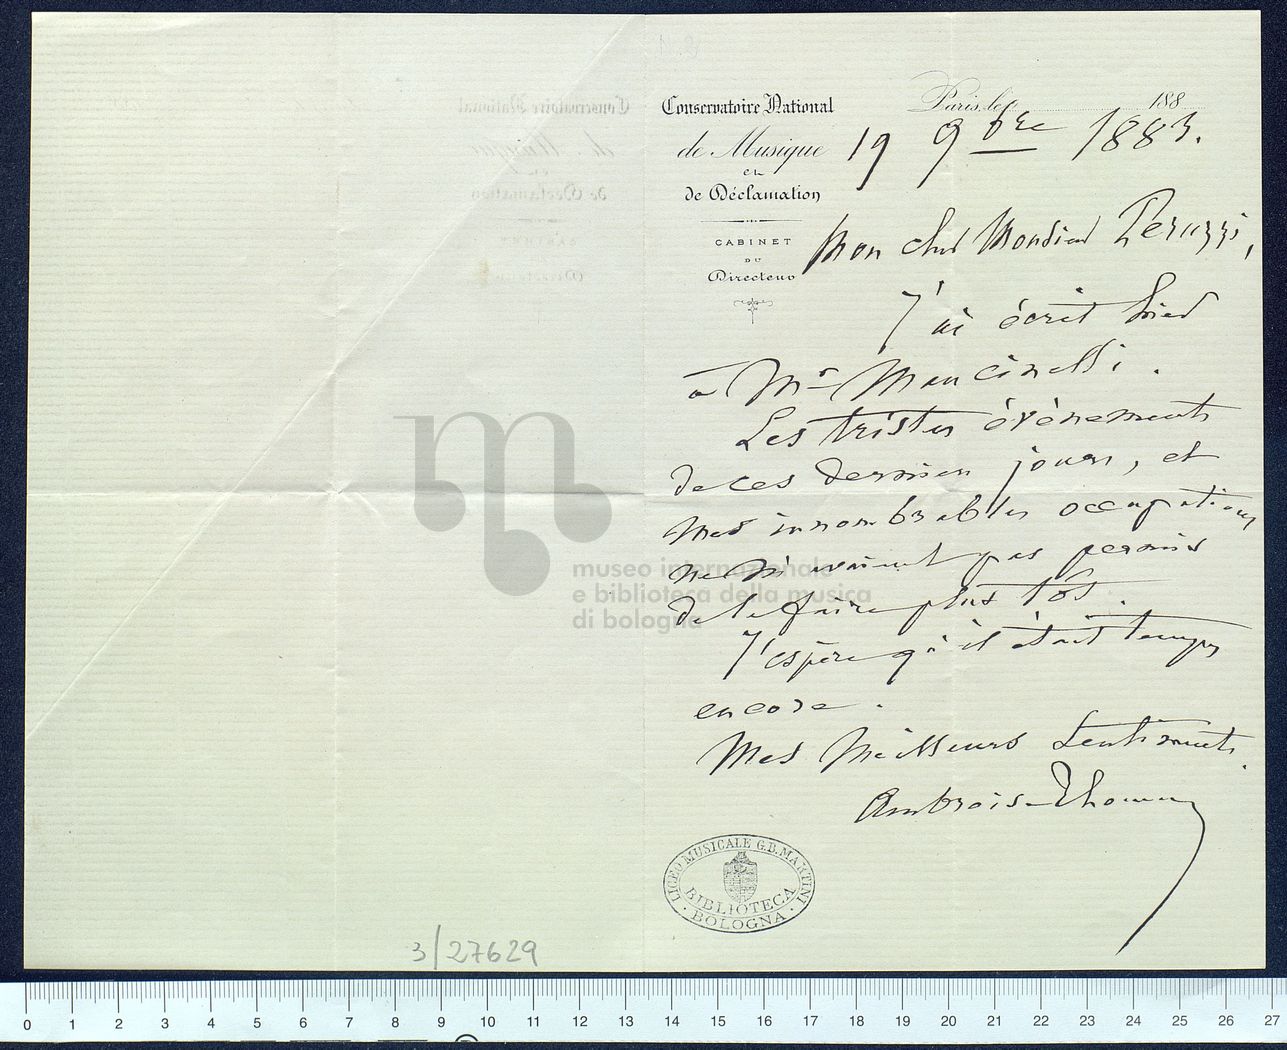 Conservatoire National
de Musique
et
de Déclamation
CABINET
DU
Directeur
Paris, le 188
19 9bre 1883.
Mon cher Monsieur Peruzzi,
J'ai écrit hier
à Mr Mancinelli.
Les tristes évènements
de ces derniers jours, et
mes innombrables occupations
ne m'avaient pas permis
de le faire plus tôt.
J'espère qu'il était temps
encore.
Mes meilleurs sentiments.
Ambroise Thomas
LICEO MUSICALE G.B. MARTINI
BIBLIOTECA
BOLOGNA
3/27629
museo internazionale
e biblioteca della musica
di bologna
0 1 2 3 4 5 6 7 8 9 10 11 12 13 14 15 16 17 18 19 20 21 22 23 24 25 26 27